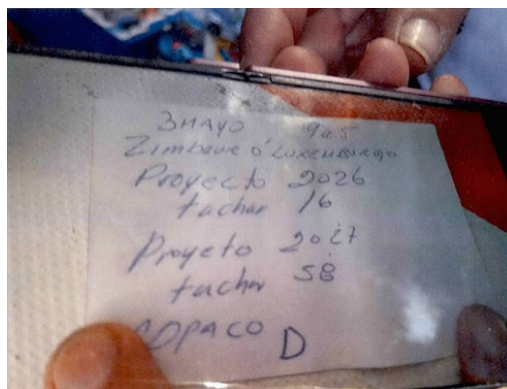 3 MAYO 9 a 5
Zimbawe o' LUXEMBURGO
Proyecto 2026
tachar 16
Proyeto 2027
tachar 58
ADPACO D